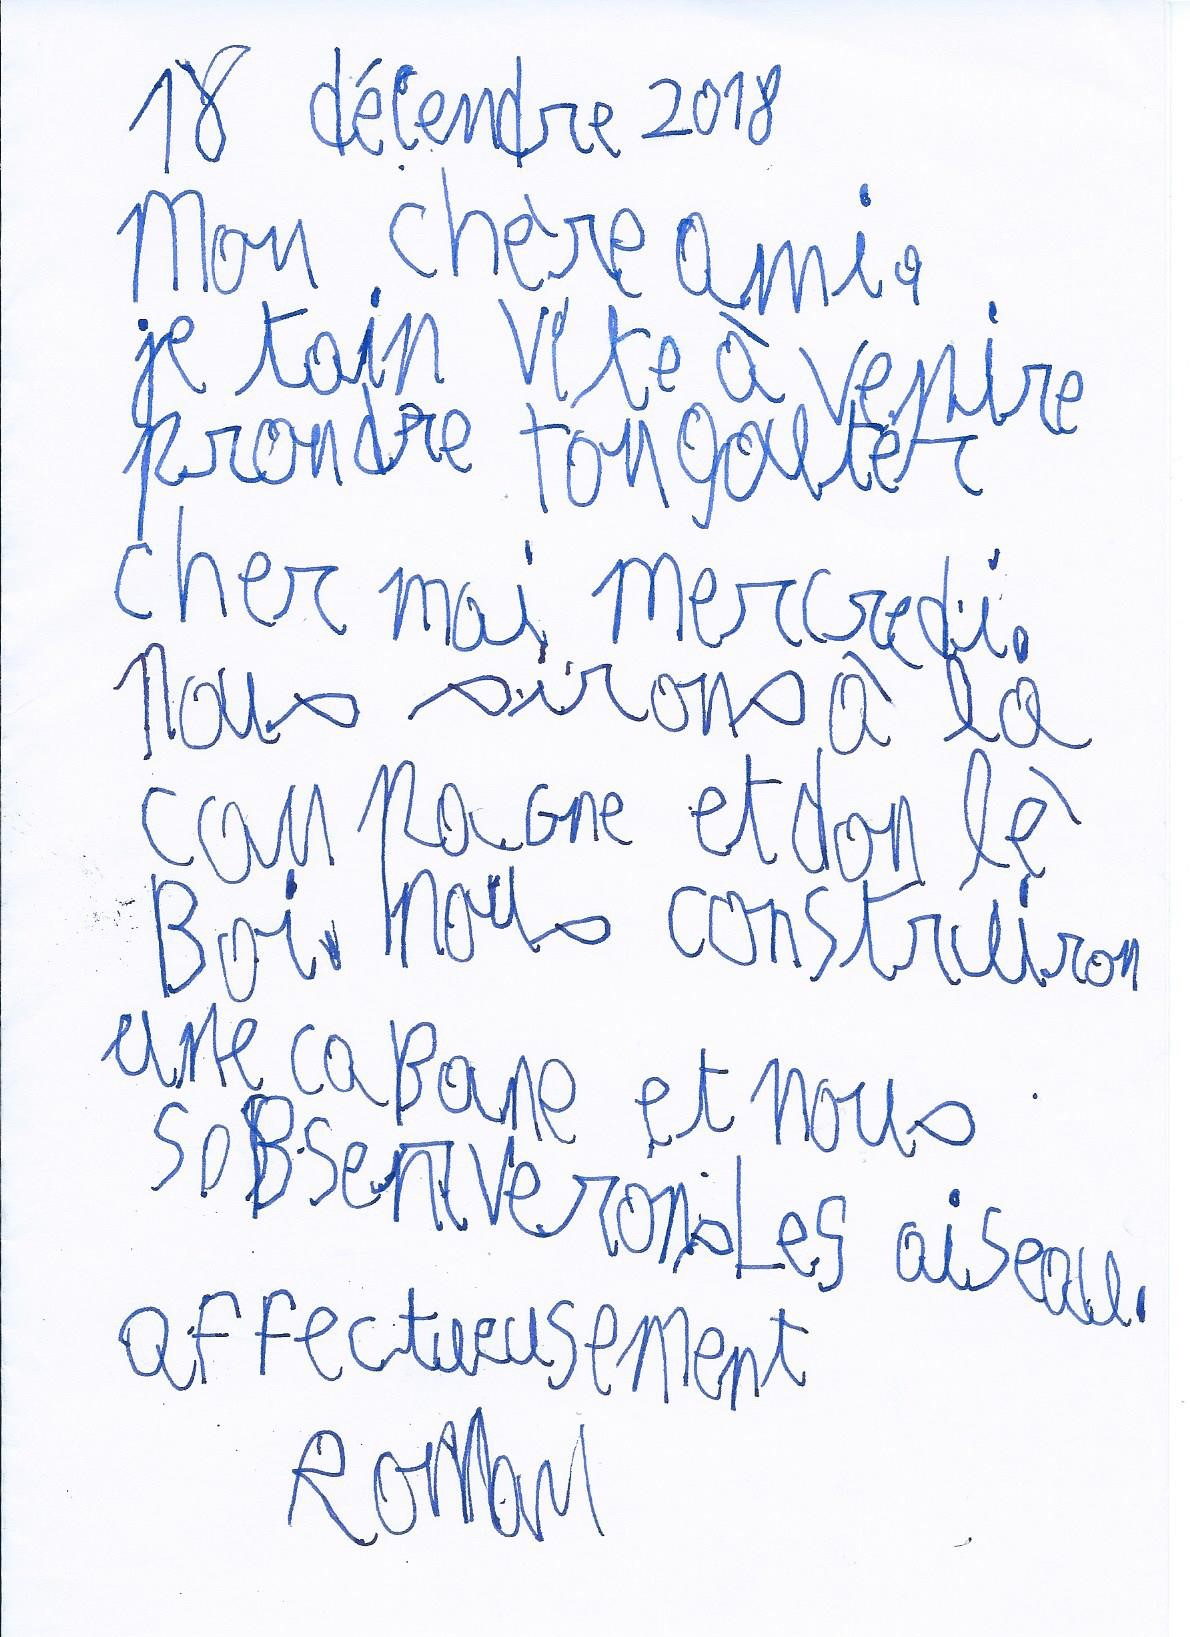 18 décendre 2018
Mon chère ami.
je tain vite à venire
prondre ton goulter
cher moi mercredi.
Nous sirons à la
canpagne et don lè
Boi. nous construiron
une caBane et nous
soBserverons Les oiseau.
affectueusement
Roman